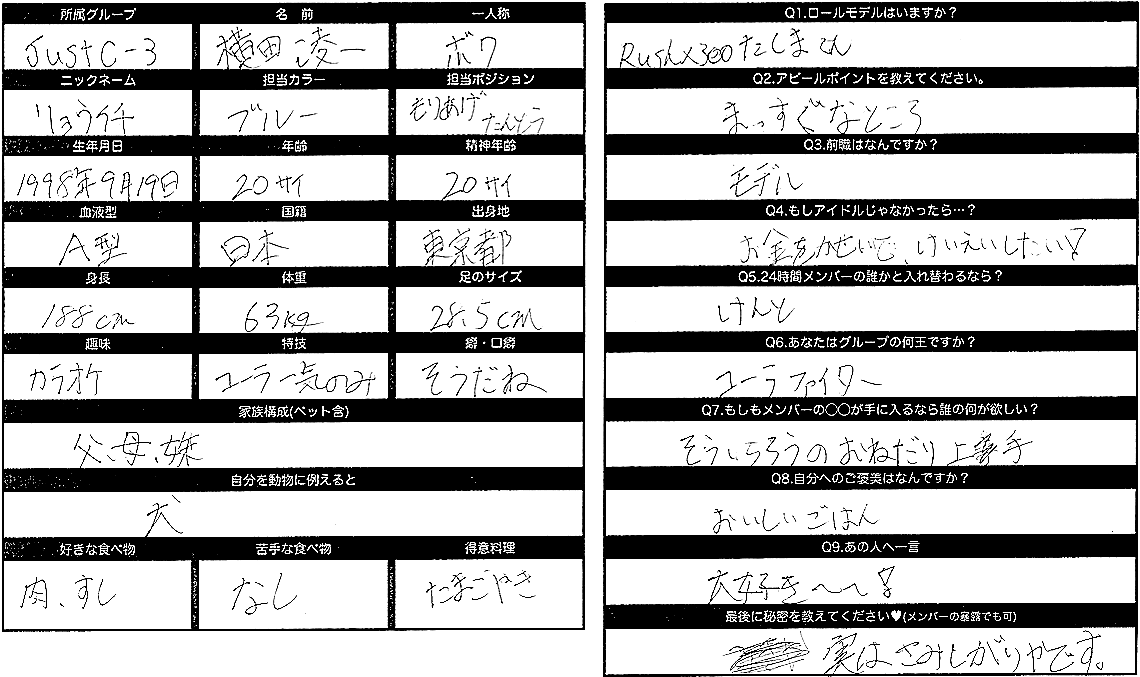 所属グループ 名前 一人称
JustC-3 横田凌一 ボク
ニックネーム 担当カラー 担当ポジション
リョウイチ ブルー もりあげ
たんとう
生年月日 年齢 精神年齢
1998年9月19日 20サイ 20サイ
血液型 国籍 出身地
A型 日本 東京都
身長 体重 足のサイズ
188cm 63kg 28.5cm
趣味 特技 癖・口癖
カラオケ コーラ一気のみ そうだね
家族構成(ペット含)
父、母、妹
自分を動物に例えると
犬
好きな食べ物 苦手な食べ物 得意料理
肉、すし なし たまごやき
Q1.ロールモデルはいますか？
RushX300たくまさん
Q2.アピールポイントを教えてください。
まっすぐなところ
Q3.前職はなんですか？
モデル
Q4.もしアイドルじゃなかったら…？
お金をかせいで、けいえいしたい！
Q5.24時間メンバーの誰かと入れ替わるなら？
けんと
Q6.あなたはグループの何王ですか？
コーラファイター
Q7.もしもメンバーの〇〇が手に入るなら誰の何が欲しい？
そういちろうのおねだり上手
Q8.自分へのご褒美はなんですか？
おいしいごはん
Q9.あの人へ一言
大好き〜〜！
最後に秘密を教えてください♥(メンバーの暴露でも可)
実はさみしがりやです。